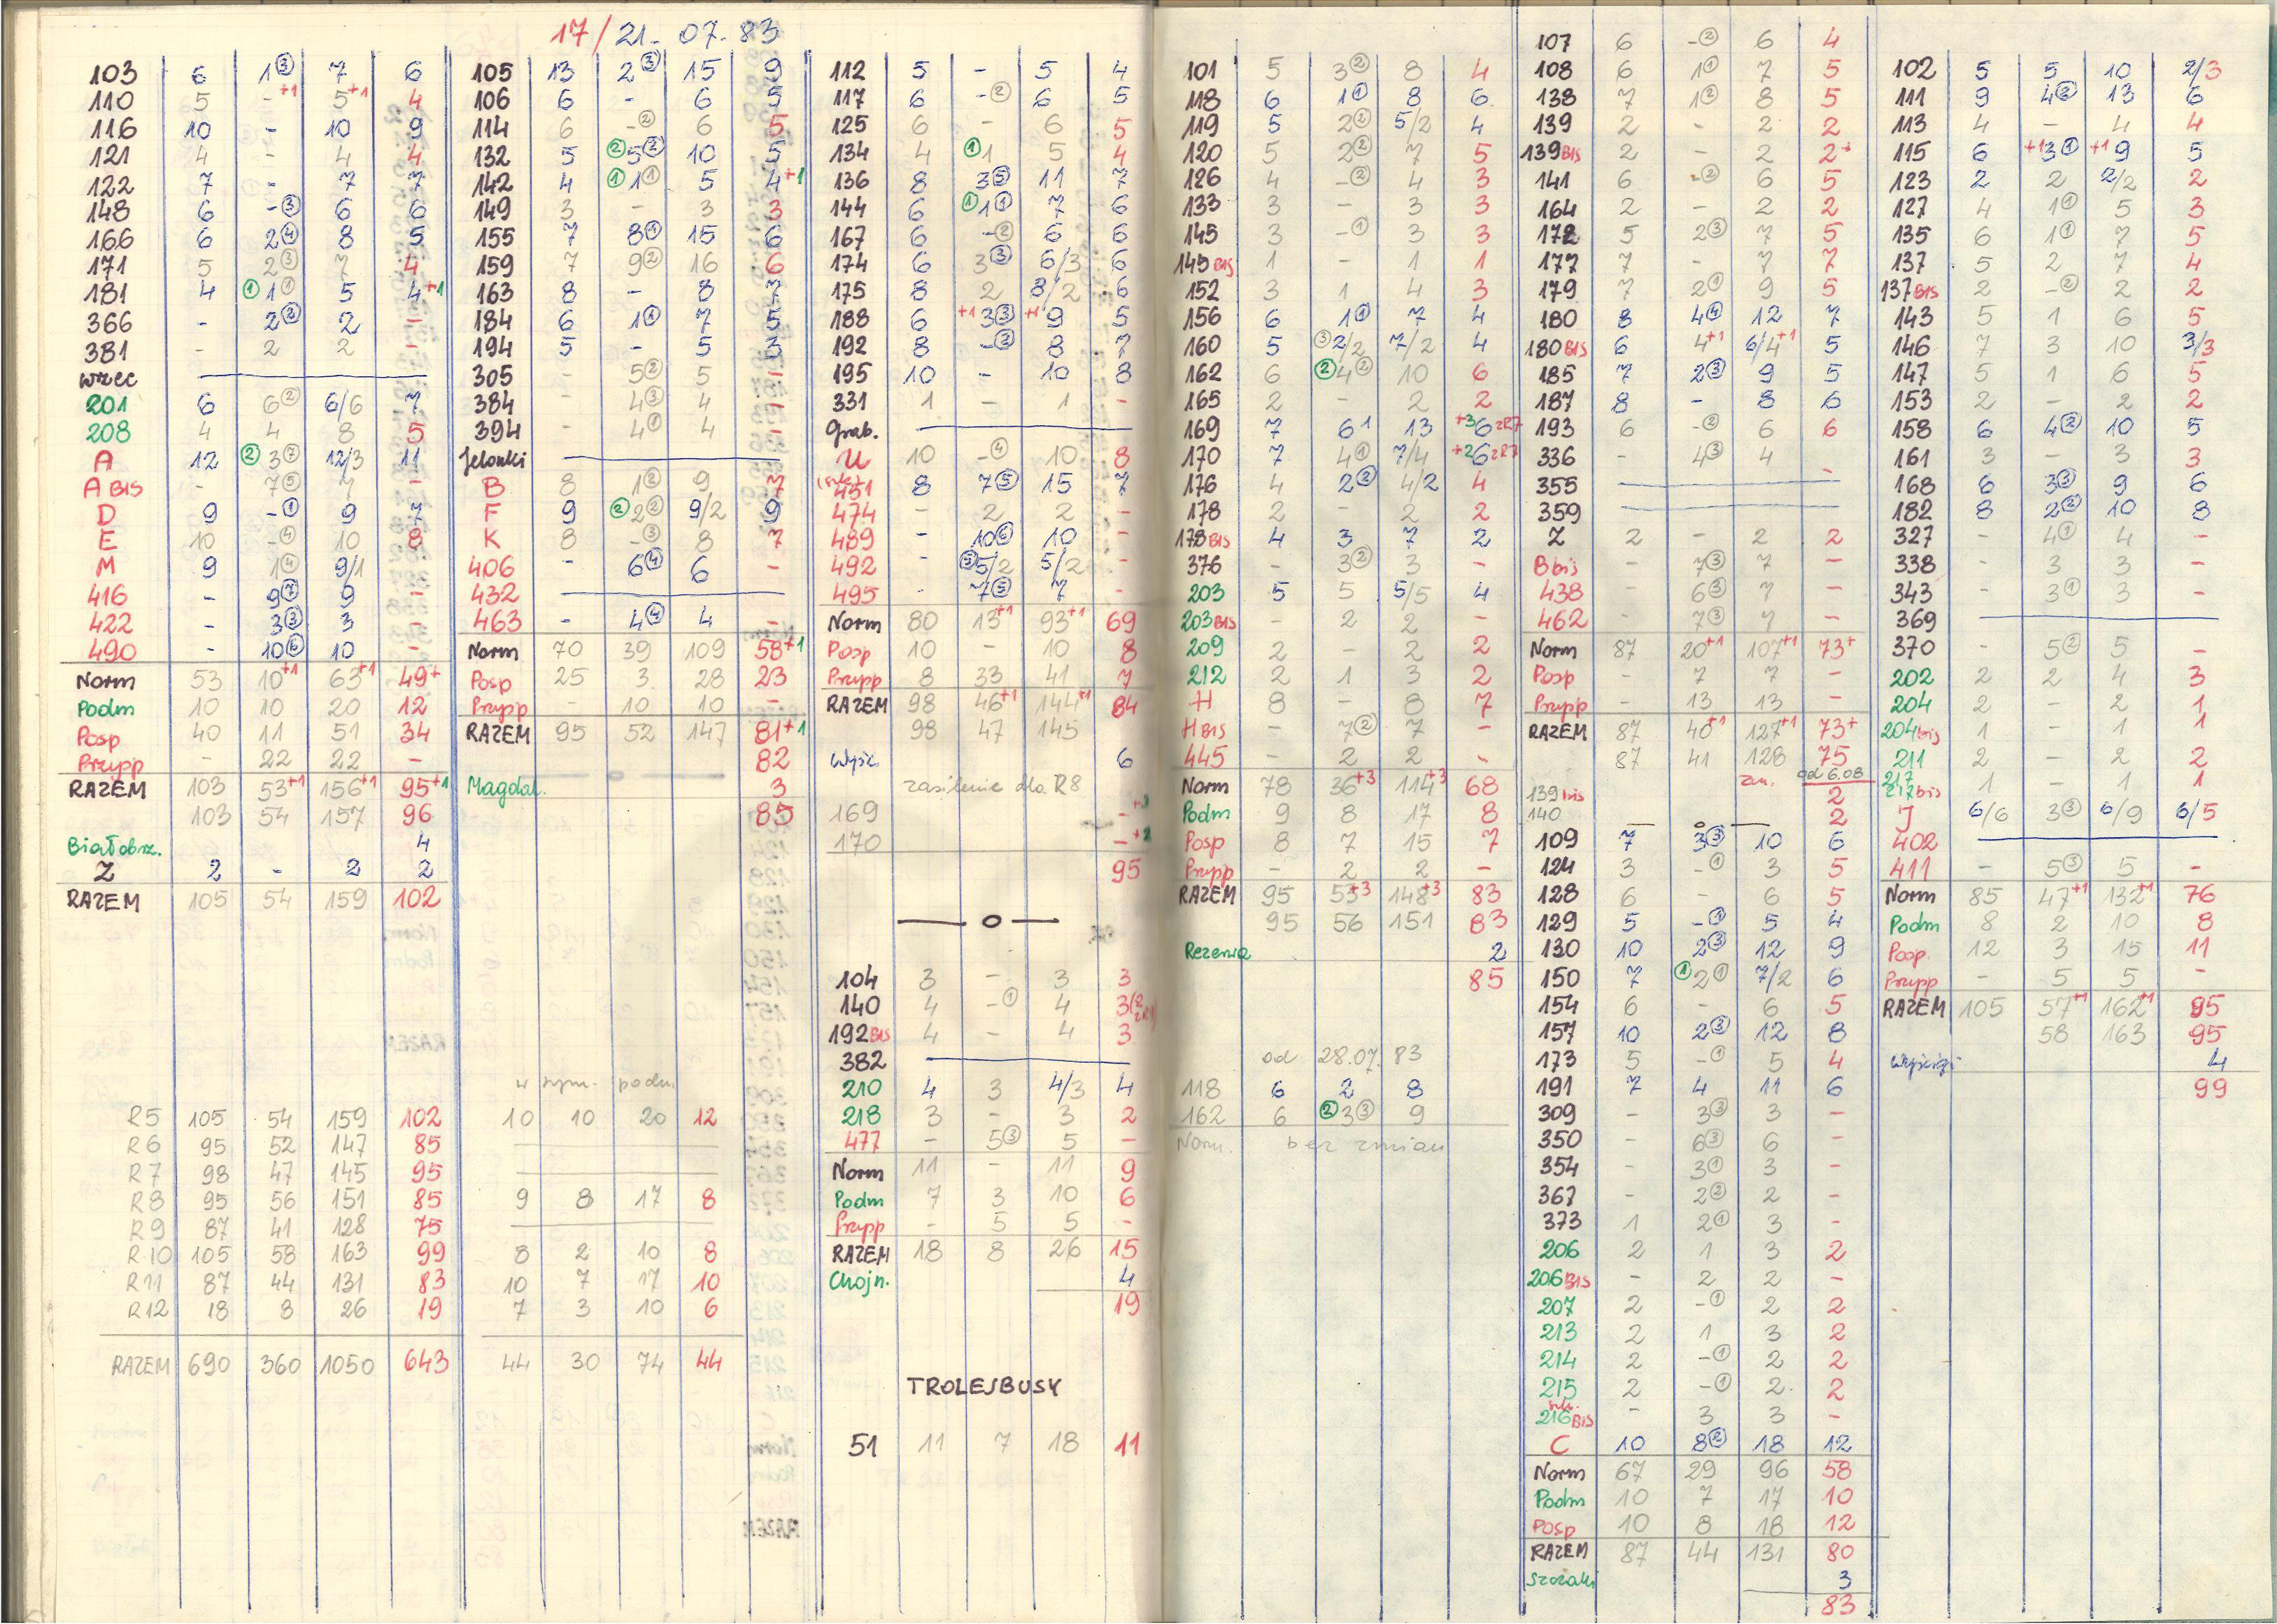 17/21. 07. 83
103 6 1③ 7 6
110 5 -+1 5+1 4
116 10 - 10 9
121 4 - 4 4
122 7 - 7 7
148 6 -③ 6 6
166 6 2④ 8 5
171 5 2③ 7 4
181 4 ①1① 5 4+1
366 - 2② 2 -
381 - 2 2 -
wrzec
201 6 6② 6/6 7
208 4 4 8 5
A 12 ②3⑦ 12/3 11
A BIS - 7⑤ 7 -
D 9 -① 9 7
E 10 -④ 10 8
M 9 1④ 9/1
416 - 9⑦ 9 -
422 - 3③ 3 -
490 - 10⑥ 10 -
Norm 53 10+1 63+1 49+
Podm 10 10 20 12
Posp 40 11 51 34
Przysp - 22 22 -
RAZEM 103 53+1 156+1 95+1
103 54 157 96
Białobrz. 4
Z 2 - 2 2
RAZEM 105 54 159 102
w tym. podm
R5 105 54 159 102 10 10 20 12
R6 95 52 147 85
R7 98 47 145 95
R8 95 56 151 85 9 8 17 8
R9 87 41 128 75
R10 105 58 163 99 8 2 10 8
R11 87 44 131 83 10 7 17 10
R12 18 8 26 19 7 3 10 6
RAZEM 690 360 1050 643 44 30 74 44
105 13 2③ 15 9
106 6 - 6 5
114 6 -② 6 5
132 5 ②5② 10 5
142 4 ①1① 5 4+1
149 3 - 3 3
155 7 8④ 15 6
159 7 9② 16 6
163 8 - 8 7
184 6 1① 7 5
194 5 - 5 3
305 - 5② 5 -
384 - 4③ 4 -
394 - 4① 4 -
Jelonki
B 8 1② 9 7
F 9 ②2② 9/2 9
K 8 -③ 8 7
406 - 6④ 6 -
432
463 - 4④ 4 -
Norm 70 39 109 58+1
Posp 25 3 28 23
Przysp - 10 10 -
RAZEM 95 52 147 81+1
82
Magdal. 3
85
112 5 - 5 4
117 6 -② 6 5
125 6 - 6 5
134 4 ①1 5 4
136 8 3⑤ 11 7
144 6 ①1① 7 6
167 6 -② 6 6
174 6 3③ 6/3 6
175 8 2 8/2 6
188 6 +13③ +19 5
192 8 -② 8 7
195 10 - 10 8
331 1 - 1 -
Grab.
U 10 -④ 10 8
451 8 7⑤ 15 7
474 - 2 2 -
489 - 10⑥ 10 -
492 - ③5/2 5/2 -
495 - 7⑤ 7 -
Norm 80 13+1 93+1 69
Posp 10 - 10 8
Przysp 8 33 41 7
RAZEM 98 46+1 144+1 84
98 47 145
Wyśc. 6
zasilenie dla R8
169 -+3
170 -+2
95
104 3 - 3 3
140 4 -① 4 3
192BIS 4 - 4 3
382
210 4 3 4/3 4
218 3 - 3 2
477 - 5③ 5 -
Norm 11 - 11 9
Podm 7 3 10 6
Przysp - 5 5 -
RAZEM 18 8 26 15
Chojn. 4
19
TROLEJBUSY
51 11 7 18 11
101 5 3② 8 4
118 6 1① 8 6
119 5 2② 5/2 4
120 5 2② 7 5
126 4 -② 4 3
133 3 - 3 3
145 3 -① 3 3
145 BIS 1 - 1 1
152 3 1 4 3
156 6 1① 7 4
160 5 ③2/2 7/2 4
162 6 ②4② 10 6
165 2 - 2 2
169 7 6 1 13 +36 zR7
170 7 4① 7/4 +26 zR7
176 4 2② 4/2 4
178 2 - 2 2
178 BIS 4 3 7 2
376 - 3② 3 -
203 5 5 5/5 4
203 BIS - 2 2 -
209 2 - 2 2
212 2 1 3 2
H 8 - 8 7
H BIS - 7② 7 -
445 - 2 2 -
Norm 78 36+3 114+3 68
Podm 9 8 17 8
Posp 8 7 15 7
Przysp - 2 2 -
RAZEM 95 53+3 148+3 83
95 56 151 83
Rezerwa 2
85
od 28.07. 83
118 6 2 8
162 6 ②3③ 9
Norm. bez zmian
107 6 -② 6 4
108 6 1① 7 5
138 7 1② 8 5
139 2 - 2 2
139 BIS 2 - 2 2+
141 6 -② 6 5
164 2 - 2 2
172 5 2③ 7 5
177 7 - 7 7
179 7 2① 9 5
180 8 4④ 12 7
180 BIS 6 4+1 6/4+1 5
185 7 2③ 9 5
187 8 - 8 6
193 6 -② 6 6
336 - 4③ 4 -
355
359
Z 2 - 2 2
B bis - 7③ 7 -
438 - 6③ 7 -
462 - 7③ 7 -
Norm 87 20+1 107+1 73+
Posp - 7 7 -
Przysp - 13 13 -
RAZEM 87 40+1 127+1 73+
87 41 128 75
zm. od 6.08
139 bis 2
140 2
109 7 3③ 10 6
124 3 -① 3 5
128 6 - 6 5
129 5 -① 5 4
130 10 2③ 12 9
150 7 ①2① 7/2 6
154 6 - 6 5
157 10 2③ 12 8
173 5 -① 5 4
191 7 4 11 6
309 - 3③ 3 -
350 - 6③ 6 -
354 - 3① 3 -
367 - 2② 2 -
373 1 2① 3 -
206 2 1 3 2
206 BIS - 2 2 -
207 2 -① 2 2
213 2 1 3 2
214 2 -① 2 2
215 2 -① 2 2
216 BIS - 3 3 -
C 10 8② 18 12
Norm 67 29 96 58
Podm 10 7 17 10
Posp 10 8 18 12
RAZEM 87 44 131 80
Szczaki 3
83
102 5 5 10 2/3
111 9 4② 13 6
113 4 - 4 4
115 6 +13① +19 5
123 2 2 2/2 2
127 4 1① 5 3
135 6 1① 7 5
137 5 2 7 4
137 BIS 2 -② 2 2
143 5 1 6 5
146 7 3 10 3/3
147 5 1 6 5
153 2 - 2 2
158 6 4② 10 5
161 3 - 3 3
168 6 3③ 9 6
182 8 2② 10 8
327 - 4① 4 -
338 - 3 3 -
343 - 3① 3 -
369
370 - 5② 5 -
202 2 2 4 3
204 2 - 2 1
204 bis 1 - 1 1
211 2 - 2 2
217 bis 1 - 1 1
J 6/6 3③ 6/9 6/5
402
411 - 5③ 5 -
Norm 85 47+1 132+1 76
Podm 8 2 10 8
Posp. 12 3 15 11
Przysp - 5 5 -
RAZEM 105 57+1 162+1 95
58 163 95
Wyścigi 4
99